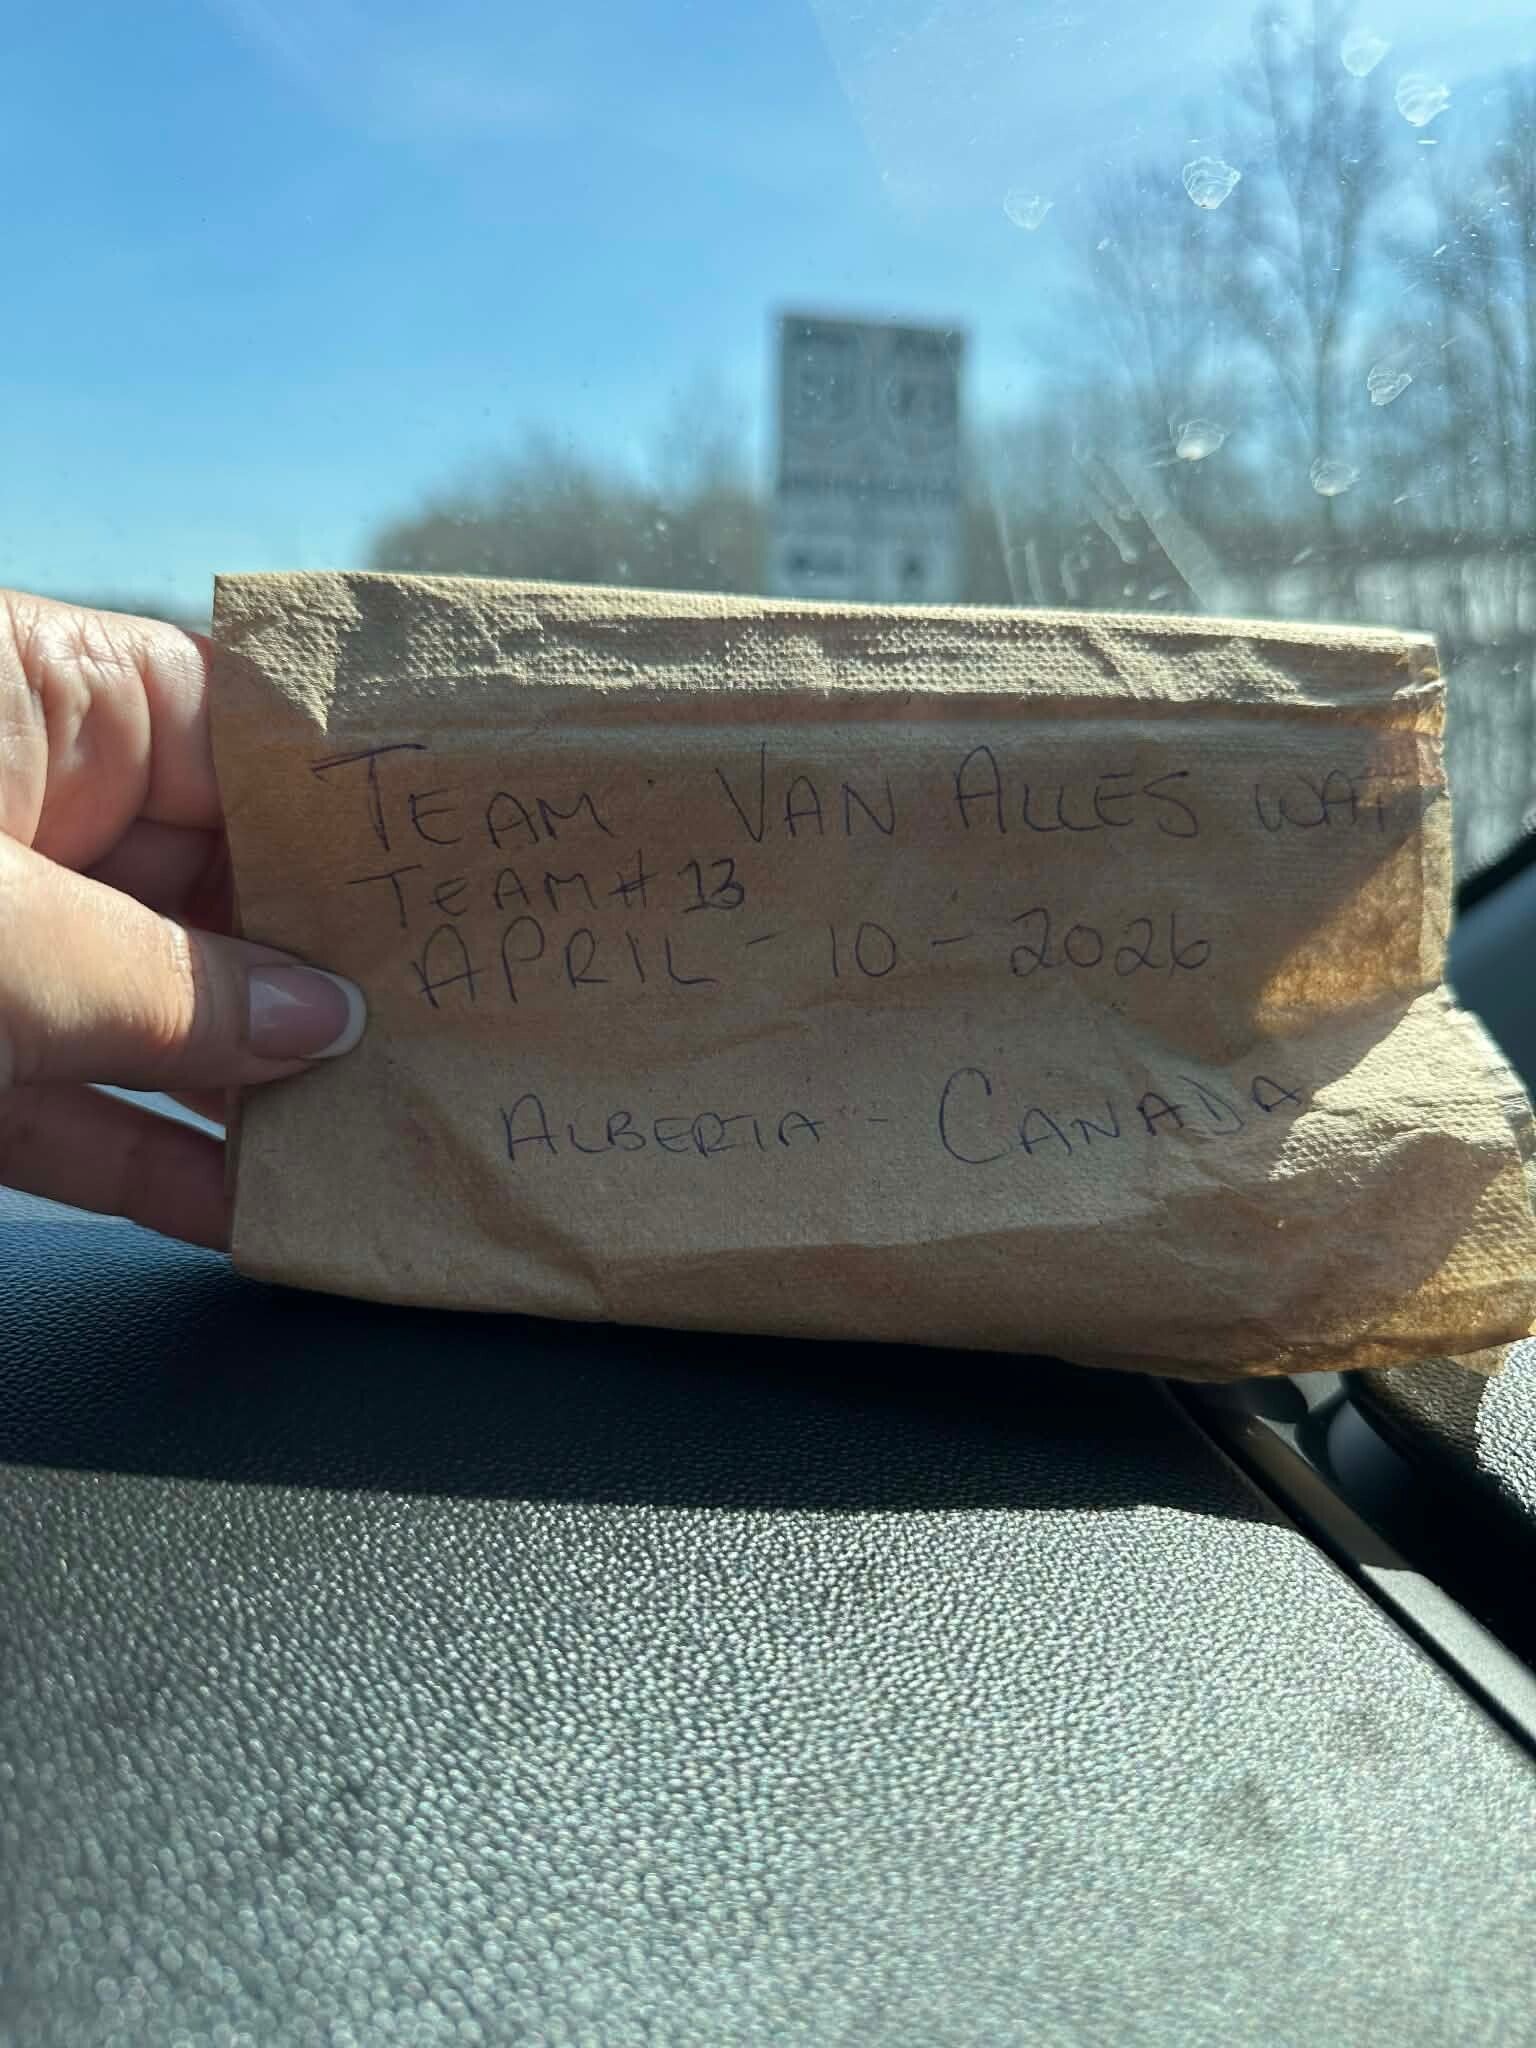 TEAM VAN ALLES WAT
TEAM # 13
APRIL - 10 - 2026
ALBERTA - CANADA